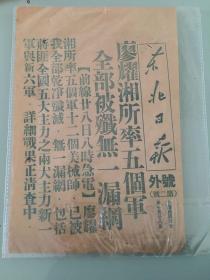 東北日報
號外
(第二號)
廖耀湘所率五個軍
全部被殲無一漏網
【前線廿八日八時急電】廖耀
湘所率五個軍十二個美械師，已被
我全部乾淨殲滅，無一漏網，包括
蔣匪全國五大主力之兩大主力新一
軍與新六軍，詳細戰果正清查中。